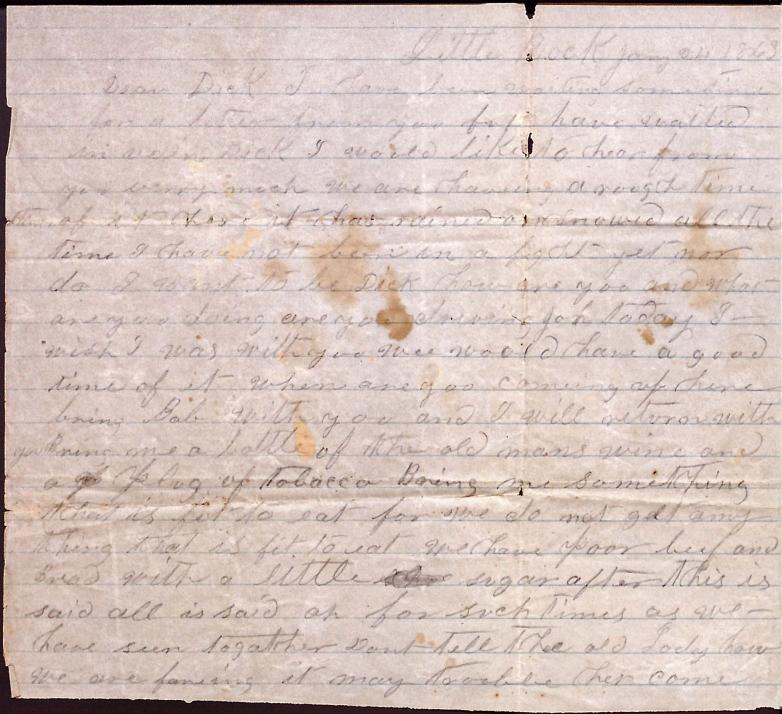 Little Rock Jany 24 186
Dear Dick I have been waiting sometime
for a letter from you but have waited
in vain Dick I would like to hear from
you verry much we are haveing a rough time
of it here it has rained or snowed all the
time I have not been in a fight yet nor
do I want to be Dick how are you and what
are you doing are you driveing today I
wish I was with you wee woold have a good
time of it when are you comeing up here
bring Bab with you and I will return with
you Bring me a bottle of the old mans wine and
a plug of tobacco Bring me something
that is fit to eat for we do not get any
thing that is fit to eat we have poor beef and
bread with a little sugar after this is
said all is said oh for such times as we
have seen together Dont tell the old Lady how
we are fareing it may trouble her come